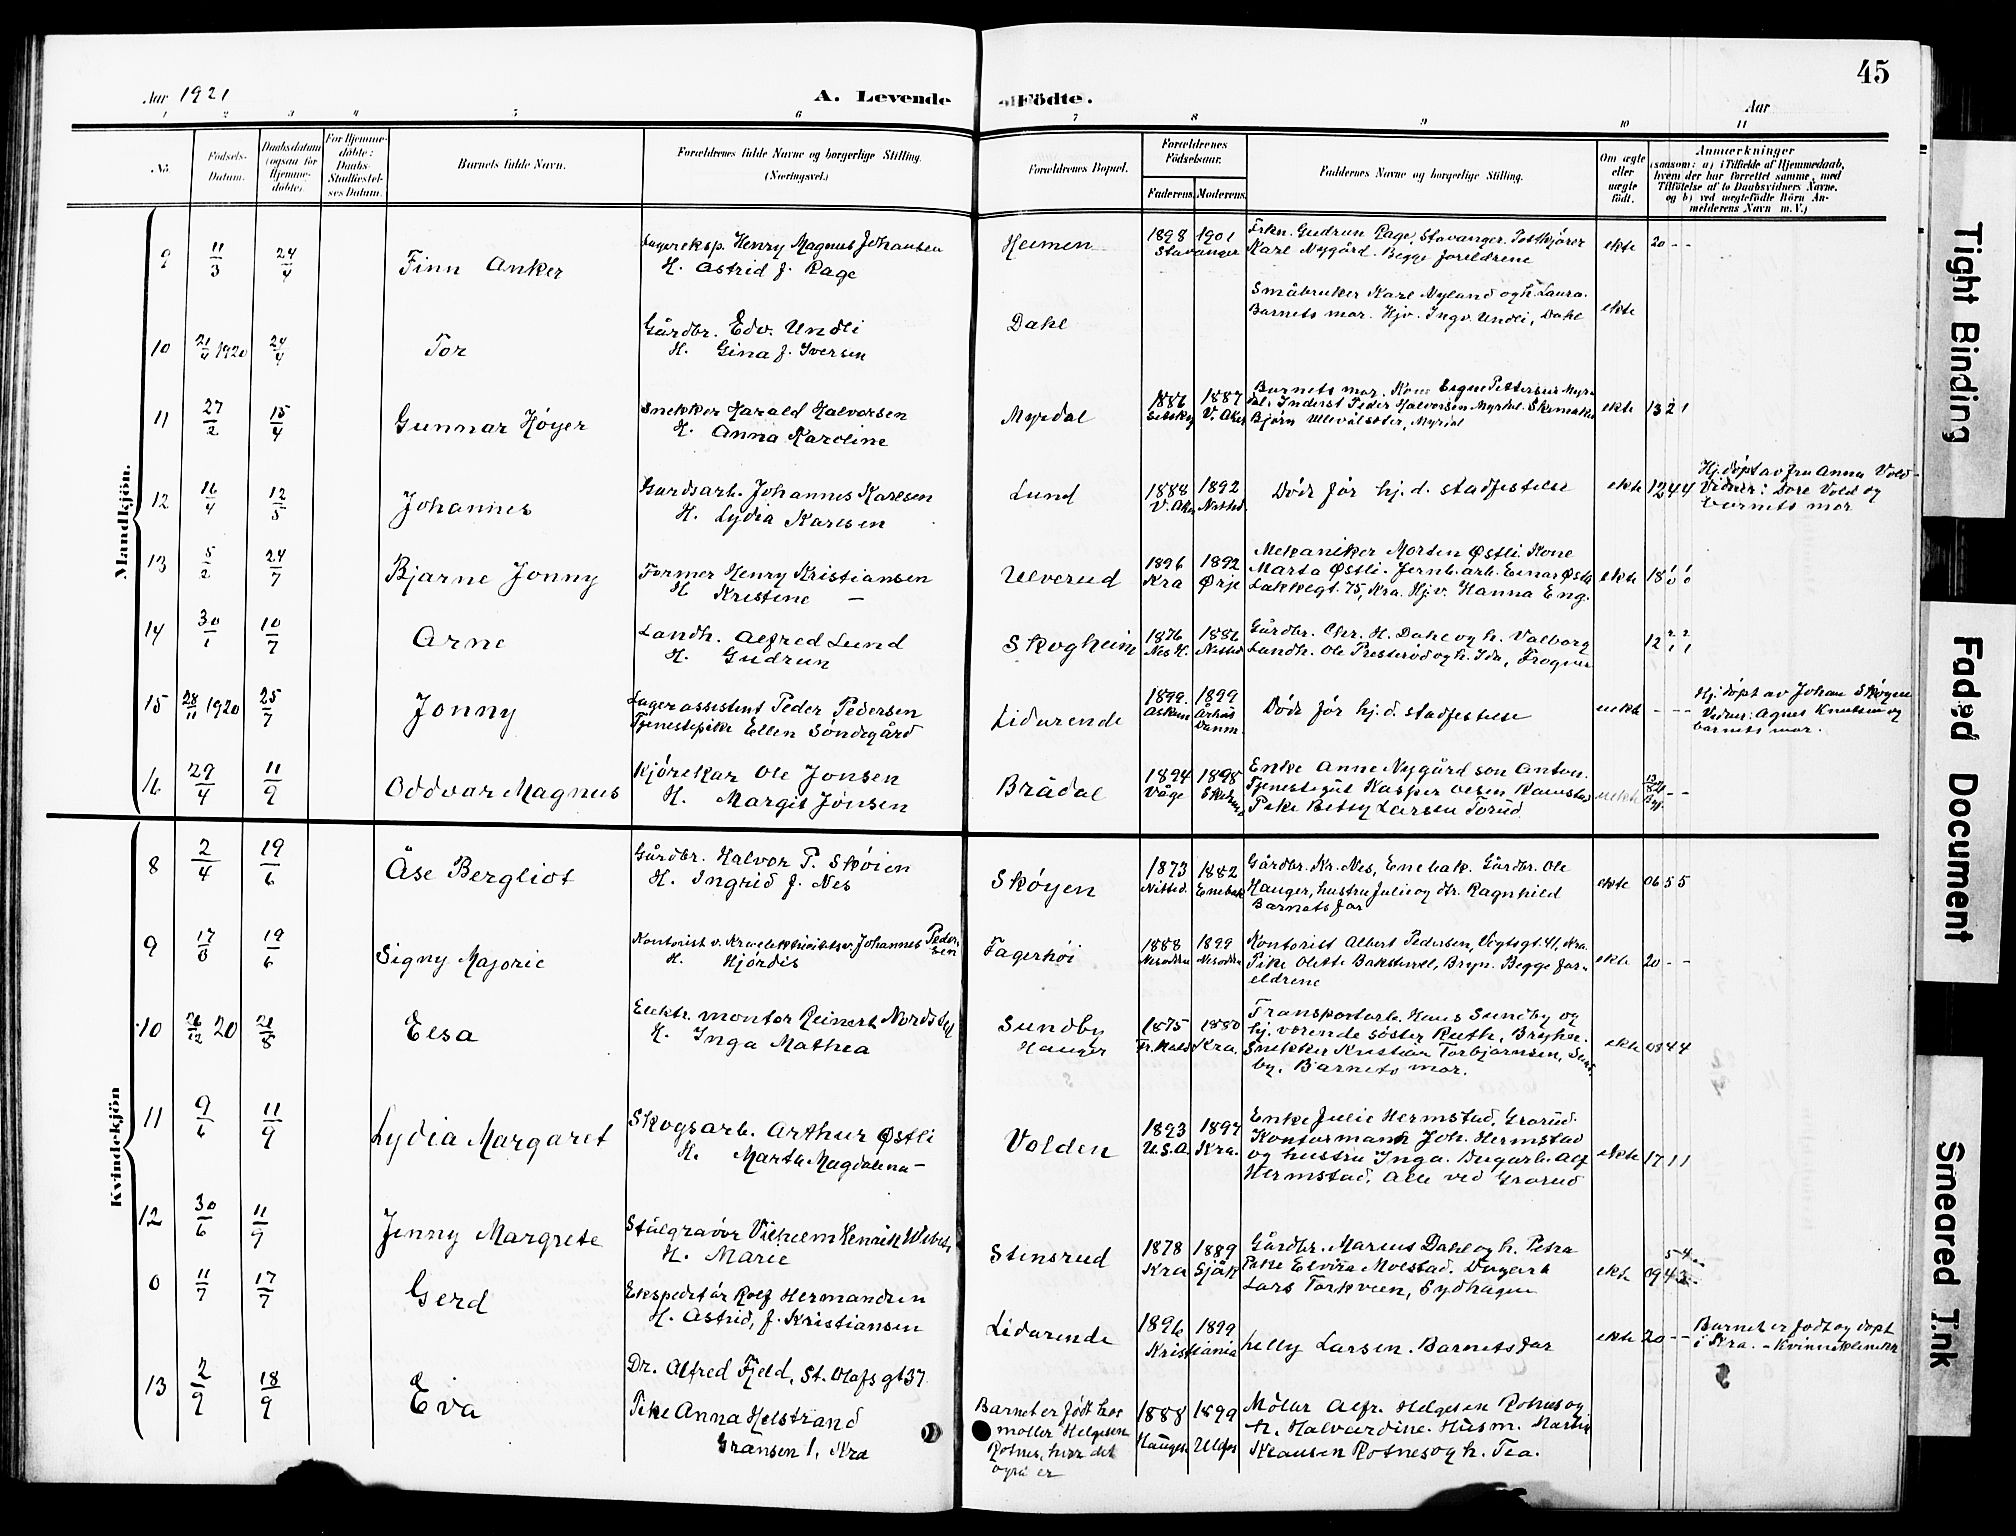 45
Aar 1921
A. Levende
Födte.
Aar
1 2 3 4 5 6 7 8 9 10 11
No.
Födsels-
Datum.
Daabsdatum
(ogsaa for
Hjemme-
döbte)
For Hjemme-
döbte:
Daabs-
Stadfæstel-
ses Datum.
Barnets fulde Navn.
Forældrenes fulde Navne og borgerlige Stilling.
(Næringsvei.)
Forældrenes Bopæl.
Forældrenes
Födselsaar.
Faderens. Moderens.
Faddernes Navne og borgerlige Stilling.
Om ægte
eller
uægte
födt.
Anmærkninger
(saasom: a) i Tilfælde af Hjemmedaab,
hvem der har forrettet samme, med
Tilföielse af to Daabsvidners Navne.
og b) ved uægtefödte Börn An-
melderens Navn m. V.)
Mandkjön.
9 11/3 24/4 Finn Anker
Lagereksp. Henry Magnus Johansen
H. Astrid f. Rage
Heimen
1898 1901
Stavanger
Frkn. Gudrun Rage, Stavanger. Postkjører
Karl Nygård. Begge foreldrene
ekte 20 - -
10 21/4 1920 24/4 Tor
Gårdbr. Edv. Undli
H. Gina f. Iversen
Dahl
Småbruker Karl Nyland og h. Laura.
Barnets mor. Hjv. Ingv. Undli, Dahl
ekte
11 27/2 15/4 Gunnar Høyer
Snekker Harald Halvorsen
H. Anna Karoline
Myrdal
1886 1887
V. Aker
Barnets mor. Kone Signe Pettersen Myr-
dal. Peder Halvorsen Myrdal.
Bjørn Ullevålseter, Myrdal
ekte 13 2 1
12 16/4 12/5 Johannes
Gardsarb. Johannes Karlsen
H. Lydia Karlsen
Lund
1888 1892
V. Aker Nitted.
Døde før hj. d. stadfestelse
ekte 12 4 4
Hj. døpt av fru Anna Vold
Vidner: Dore Vold og
barnets mor
13 5/2 24/7 Bjarne Jonny
Former Henry Kristiansen
H. Kristine —
Ulverud
1896 1892
Kra Ørje
Mekaniker Morten Østli. Kone
Marta Østli. Jernb.arb. Einar Østli
Lakkegt. 75, Kra. Hjv. Hanna Eng.
ekte 18
14 30/1 10/7 Arne
Landh. Alfred Lund
H. Gudrun
Skogheim
1876 1886
Nes H. Nitted.
Gårdbr. Chr. H. Dahl og h. Valborg
Landh. Ole Presterød og h. Ida, Frogner
12
15 28/11 1920 25/7 Jonny
Lagerassistent Peder Pedersen
Tjenestepike Ellen Søndegård
Lidarende
1899 1899
Askim Århus
Danm.
Døde før hj. d. stadfestelse
uekte - - -
Hj. døpt av Johan Skøyen
Vidner: Agnes Knutsen og
barnets mor.
16 29/4 11/9 Oddvar Magnus
Kjørekar Ole Jonsen
H. Margit Jonsen
Brådal
1894 1898
Våge
Enke Anne Nygård søn Anton.
Tjenestegut Kasper Olsen Ramstad
Pike Betsy Larsen Torud.
uekte
Kvindekjön
8 2/4 19/6 Åse Bergliot
Gårdbr. Halvor P. Skøien
H. Ingrid f. Nes
Skøyen
1873 1882
Nitted. Enebak
Gårdbr. Kr. Nes, Enebak. Gårdbr. Ole
Hauger, hustru Julie og dtr. Ragnhild
Barnets far
ekte 06 5 5
9 17/3 19/6 Signy Majorie
Kontorist v. Kra elektricitetsv. Johannes Peder-
sen
H. Hjørdis
Fagerhøi
1888 1899
Nesodden Nesodden
Kontorist Albert Pedersen, Vogtsgt. 41, Kra.
Pike Olette Bakstevel, Bryn. Begge for-
eldrene
ekte 20 - -
10 26/12 20 21/8 Elsa
Elektr. montør Reinert Nordstad
H. Inga Mathea
Sundby
Hauger
1875 1880
Fr.hald Kra.
Transportarb. Hans Sundby og
hj. værende søster Ruth, Bryhn.
Snekker Kristian Torbjørnsen, Sund-
by. Barnets mor.
ekte 08 4 4
11 9/6 11/9 Lydia Margaret
Skogsarb. Arthur Østli
H. Marta Magdalena —
Volden
1893 1897
U.S.A. Kra.
Enke Julie Hermstad, Grorud.
Kontormann Joh. Hermstad
og hustru Inga. Bygarb. Alf
Hermstad. Alle ved Grorud
ekte 17 1 1
12 30/6 11/9 Jenny Margrete
Stålgravør Vilhelm Henrik
H. Marie
Stensrud
1878 1889
Kra Sjåk
Gårdbr. Marius Dahl og h. Petra
Pike Elvira Molstad.
Lars Torkveen, Sydhagen
ekte 09 4 3
0 11/7 17/7 Gerd
Ekspeditør Rolf Hermansen
H. Astrid, f. Kristiansen
Lidarende
1896 1899
Kristiania
Nelly Larsen. Barnets far
ekte 20 - -
Barnet er født og døpt
i Kra. - Kvinneklinikk
13 2/9 18/9 Eva
Dr. Alfred Fjeld, St. Olafs gt 37
Pike Anna Helstrand
Grænsen 1, Kra
Barnet er født hos
møller Helgesen
Rotnes, hvor det
også er
1888 1899
Hauges Ulefos
Møller Alfr. Helgesen Rotnes og
h. Halvardine. Husm. Martin
Klausen Rotnes og h. Tea.
Tight Binding
Faded Document
Smeared Ink